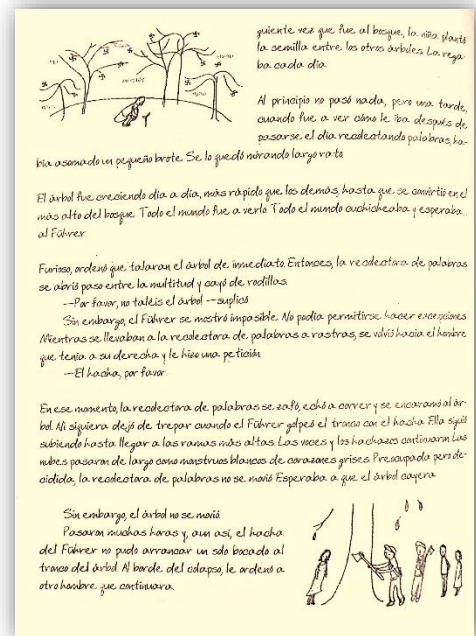 guiente vez que fue al bosque, la niña plantó
la semilla entre los otros árboles. La rega-
ba cada día.
Al principio no pasó nada, pero una tarde,
cuando fue a ver cómo le iba después de
pasarse el día recolectando palabras, ha-
bía asomado un pequeño brote. Se lo quedó mirando largo rato.
El árbol fue creciendo día a día, más rápido que los demás, hasta que se convirtió en el
más alto del bosque. Todo el mundo fue a verlo. Todo el mundo cuchicheaba y esperaba...
al Führer.
Furioso, ordenó que talaran el árbol de inmediato. Entonces, la recolectora de palabras
se abrió paso entre la multitud y cayó de rodillas.
—Por favor, no taléis el árbol —suplicó.
Sin embargo, el Führer se mostró impasible. No podía permitirse hacer excepciones.
Mientras se llevaban a la recolectora de palabras a rastras, se volvió hacia el hombre
que tenía a su derecha y le hizo una petición.
—El hacha, por favor.
En ese momento, la recolectora de palabras se zafó, echó a correr y se encaramó al ár-
bol. Ni siquiera dejó de trepar cuando el Führer golpeó el tronco con el hacha. Ella siguió
subiendo hasta llegar a las ramas más altas. Las voces y los hachazos continuaron. Las
nubes pasaron de largo como monstruos blancos de corazones grises. Preocupada pero de-
cidida, la recolectora de palabras no se movió. Esperaba a que el árbol cayera.
Sin embargo, el árbol no se movió.
Pasaron muchas horas y, aun así, el hacha
del Führer no pudo arrancar un solo bocado al
tronco del árbol. Al borde del colapso, le ordenó a
otro hombre que continuara.